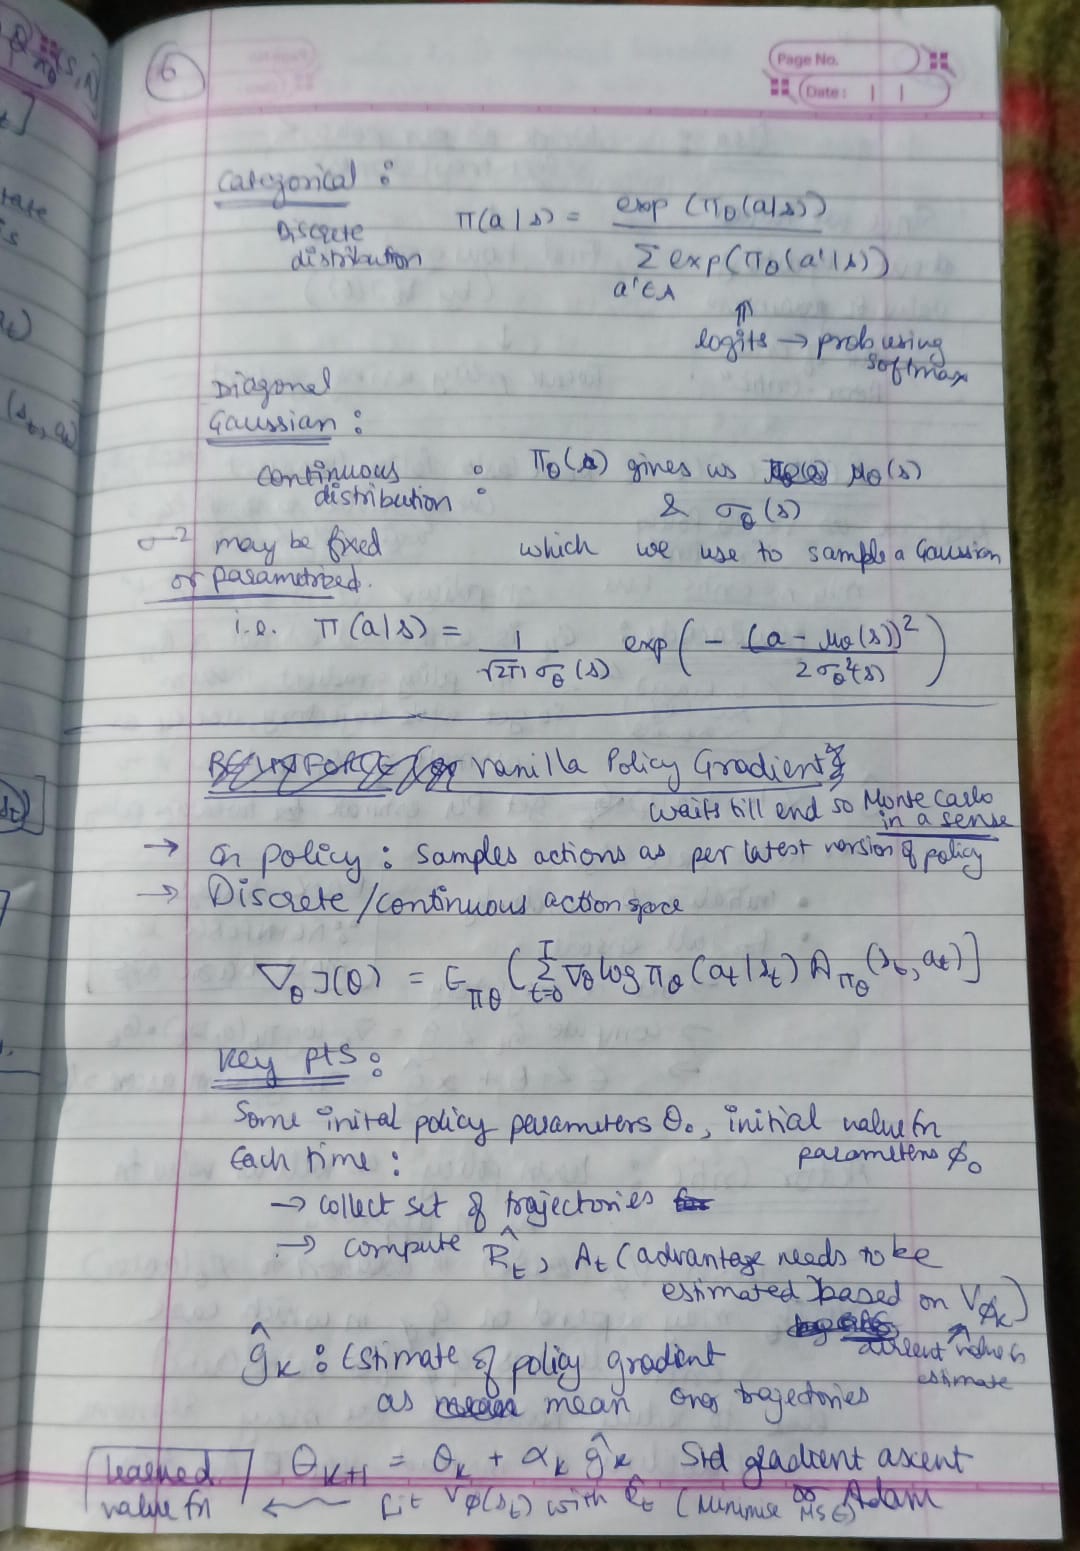 Q πθ(s, A)
6
Page No.
Date:
Categorical :
Discrete distribution
π(a|s) = exp (πθ(a|s)) / Σ a'∈A exp(πθ(a'|s))
⇑
logits → prob using softmax
Diagonal
Gaussian :
continuous distribution :
πθ(s) gives us μθ(s)
& σθ(s)
σ² may be fixed
which we use to sample a Gaussian
or parametrized.
i.e. π(a|s) = 1 / √2π σθ(s) exp(- (a - μθ(s))² / 2σθ²(s))
REINFORCE (or Vanilla Policy Gradient)
waits till end so Monte Carlo
in a sense
→ On policy : samples actions as per latest version of policy
→ Discrete / continuous action space
∇θ J(θ) = Eπθ [ Σ t=0 T ∇θ log πθ (at|st) Aπθ (st, at) ]
Key pts :
Some inital policy parameters θ0, initial value fn
parameters φ0
Each time :
→ collect set of trajectories
→ compute R̂t, At (advantage needs to be
estimated based on Vφk)
current value fn
estimate
ĝk : Estimate of policy gradient
as mean over trajectories
θk+1 = θk + αk ĝk Std gradient ascent
or Adam
learned value fn ← Fit Vφ(st) with R̂t (minimise MSE)